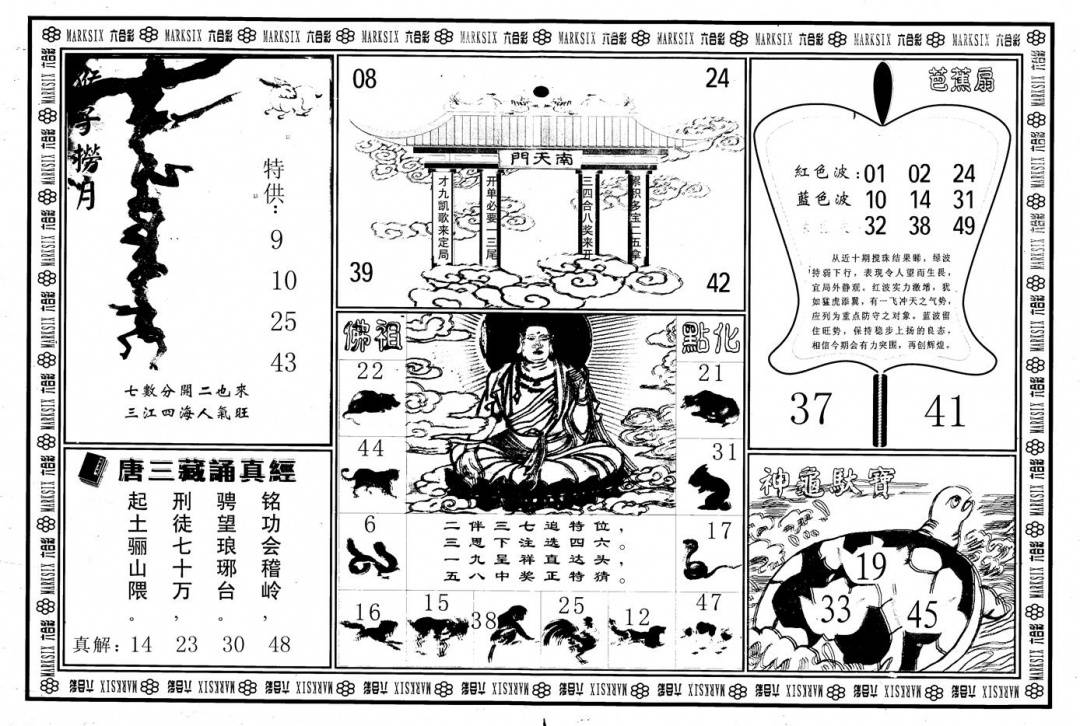 MARKSIX 六合彩 MARKSIX 六合彩 MARKSIX 六合彩 MARKSIX 六合彩 MARKSIX 六合彩 MARKSIX 六合彩 MARKSIX 六合彩 MARKSIX 六合彩 MARKSIX 六合彩 MARKSIX 六合彩
猴子撈月
特供：
9
10
25
43
七數分開二也來
三江四海人氣旺
唐三藏誦真經
铭功会稽岭，
骋望琅琊台。
刑徒七十万，
起土骊山隈。
真解：14 23 30 48
08
24
南天門
才九凯歌来定局
开单必要一三尾
三四合八奖来开
累积多宝二五拿
39
42
佛祖
點化
22
21
44
31
6
17
二伴三七追特位，
三思下注选四六。
一九呈祥直达头，
五八中奖正特猜。
16
15
38
25
12
47
芭蕉扇
紅色波：01 02 24
藍色波 10 14 31
32 38 49
从近十期搅珠结果睇，绿波
特弱下行，表现令人望而生畏，
宜局外静观。红波实力激增，犹
如猛虎添翼，有一飞冲天之气势，
应列为重点防守之对象。蓝波留
住旺势，保持稳步上扬的良态，
相信今期会有力突围，再创辉煌。
37
41
神龜馱寶
19
33
45